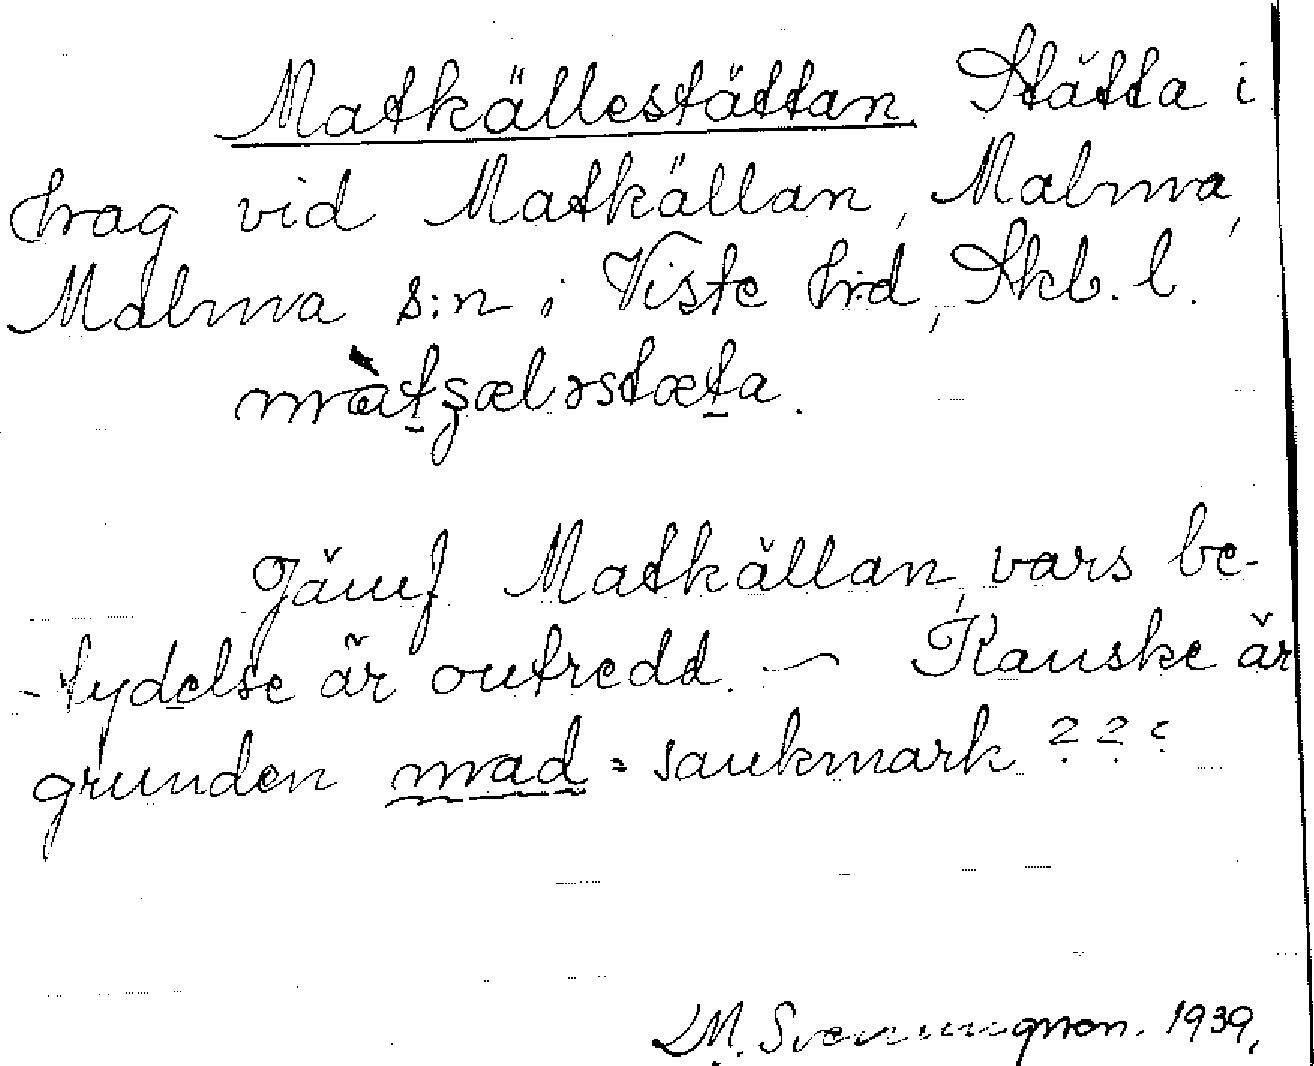 Matkällestättan. Stätta i
hag vid Matkällan, Malma,
Malma s:n i Viste hd, Skb. l.
màtʂælɘstæta.
Jämf Matkällan, vars be-
-tydelse är outredd. — Kanske är
grunden mad = sankmark ???
1939.